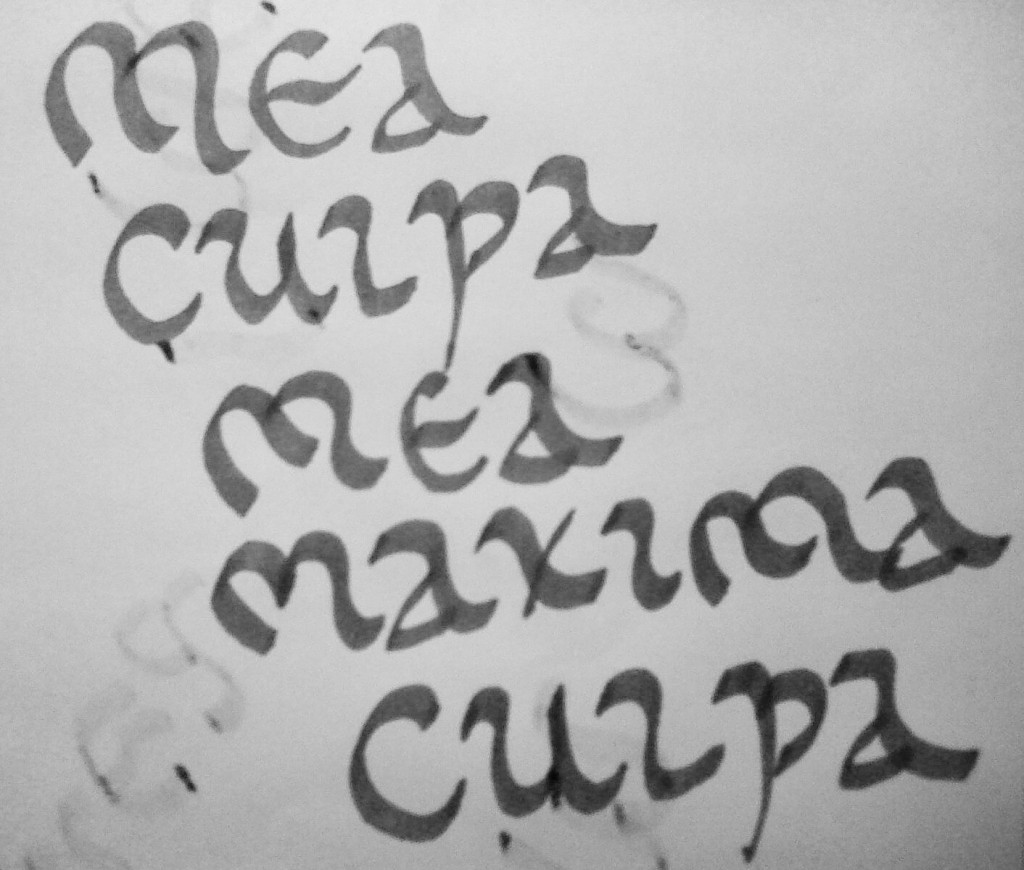 mea
culpa
mea
maxima
culpa